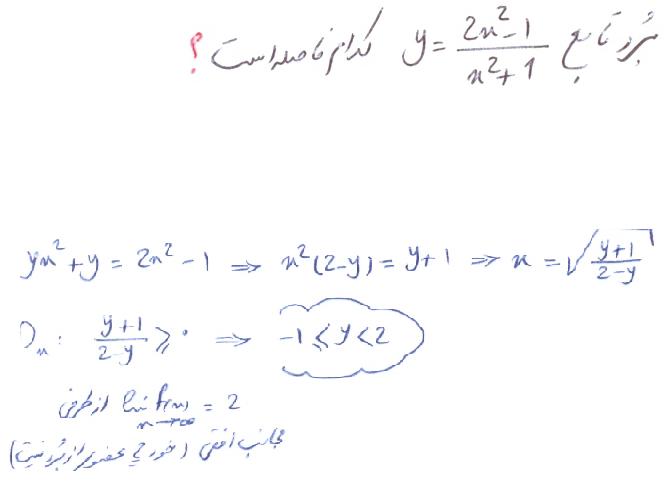 برد تابع y = (2x²-1)/(x²+1) کدام فاصله است ؟
yx² + y = 2x² - 1 ⇒ x²(2-y) = y+1 ⇒ x = √((y+1)/(2-y))
Dₓ : (y+1)/(2-y) ≥ ۰ ⇒ -1 ≤ y < 2
از طرفی lim f(x) = 2
x→∞
مجانب افقی (خودش عضوی از برد نیست)